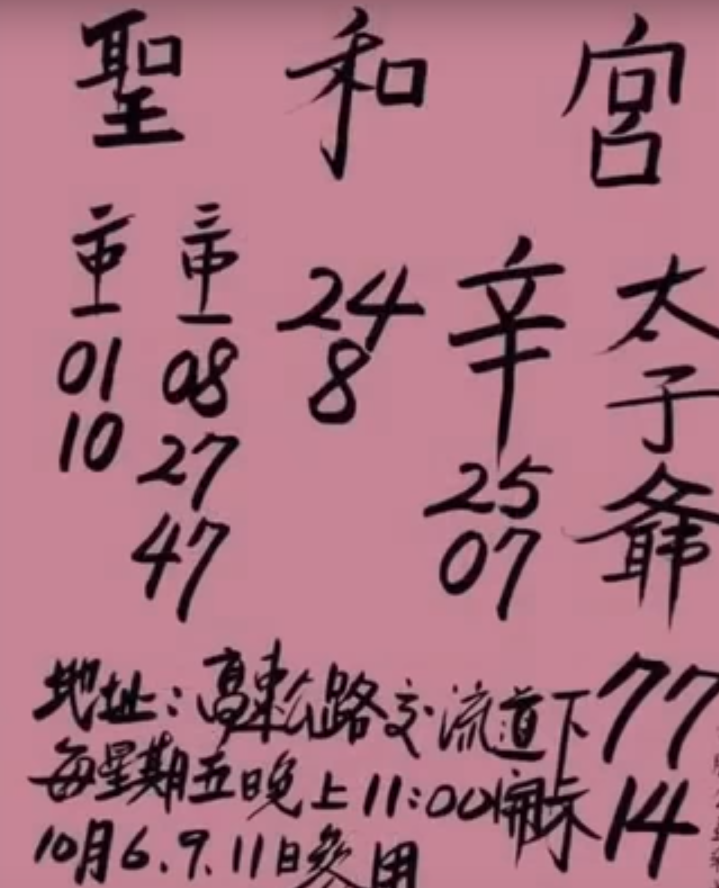 聖和宮
太子爺
77
14
辛
25
07
24
8
三中一
08
27
47
二中一
01
10
地址：高東公路交流道下
每星期五晚上11:00開示
10月6.9.11日參用